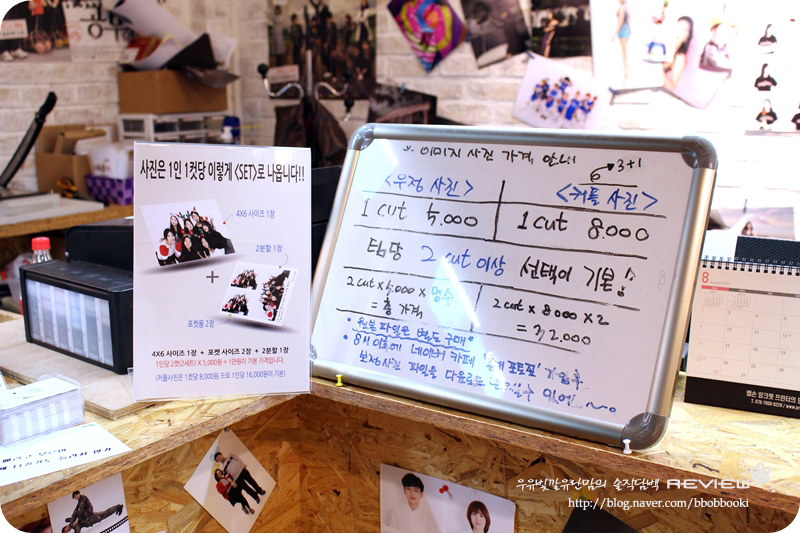 사진은 1인 1컷당 이렇게 <SET>로 나옵니다!!
4X6 사이즈 1장
2분할 1장
+
포켓용 2장
4X6 사이즈 1장 + 포켓 사이즈 2장 + 2분할 1장
1인당 2컷(2세트) X 5,000원 = 1만원이 기본 가격입니다.
(커플사진은 1컷당 8,000원 으로 1인당 16,000원이 기본)
※ 이미지 사진 가격 안내
6 3+1
<우정 사진> <커플 사진>
1 cut 5.000 1 cut 8.000
팀당 2 cut 이상 선택이 기본!
2 cut x 5,000 x 명수
= 총 가격
2 cut x 8,000 x 2
= 32.000
• 원본 파일은 별도 구매*
• 8시 이후에 네이버 카페 포토 가입 후
보정사진 파일을 다운로드 있어
8
우유빛깔유란맘의 솔직담백 REVIEW
http://blog.naver.com/bbobbooki